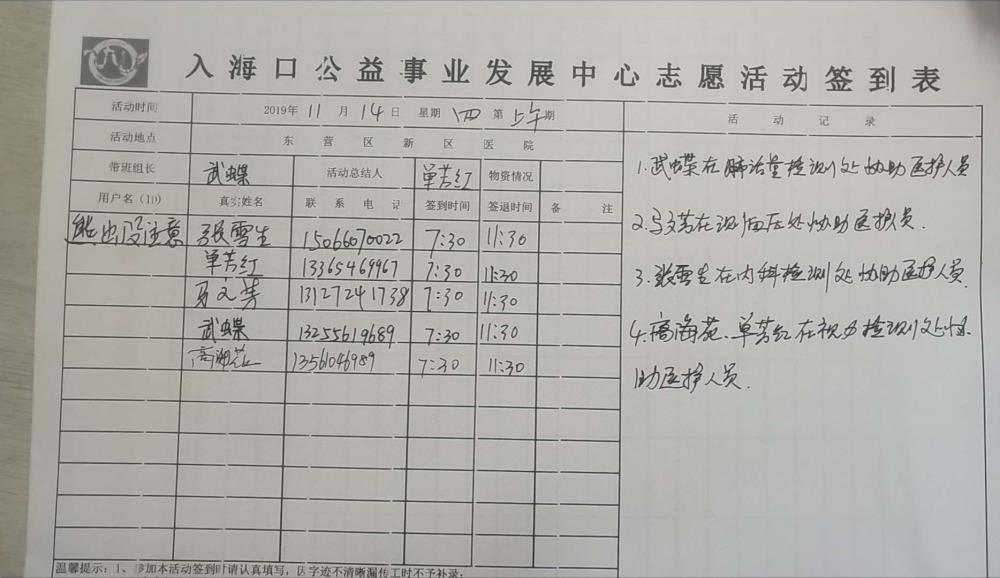 入海口公益事业发展中心志愿活动签到表
活动时间 2019年 11 月 14 日 星期 四 第 上午 期
活动地点 东营区新区医院
带班组长 武蝶 活动总结人 单芳红 物资情况
用户名(ID) 真实姓名 联系电话 签到时间 签退时间 备注
熊出没注意 张雪生 15066070022 7:30 11:30
单芳红 13365469967 7:30 11:30
马文芳 13127241738 7:30 11:30
武蝶 13255619689 7:30 11:30
高海苑 13561046989 7:30 11:30
活动记录
1.武蝶在肺活量检测处协助医护人员
2.马文芳在测血压处协助医护人员.
3.张雪生在内科检测处协助医护人员.
4.高海苑、单芳红在视力检测处协
助医护人员.
温馨提示:1、参加本活动签到时请认真填写,因字迹不清晰漏传工时不予补录;